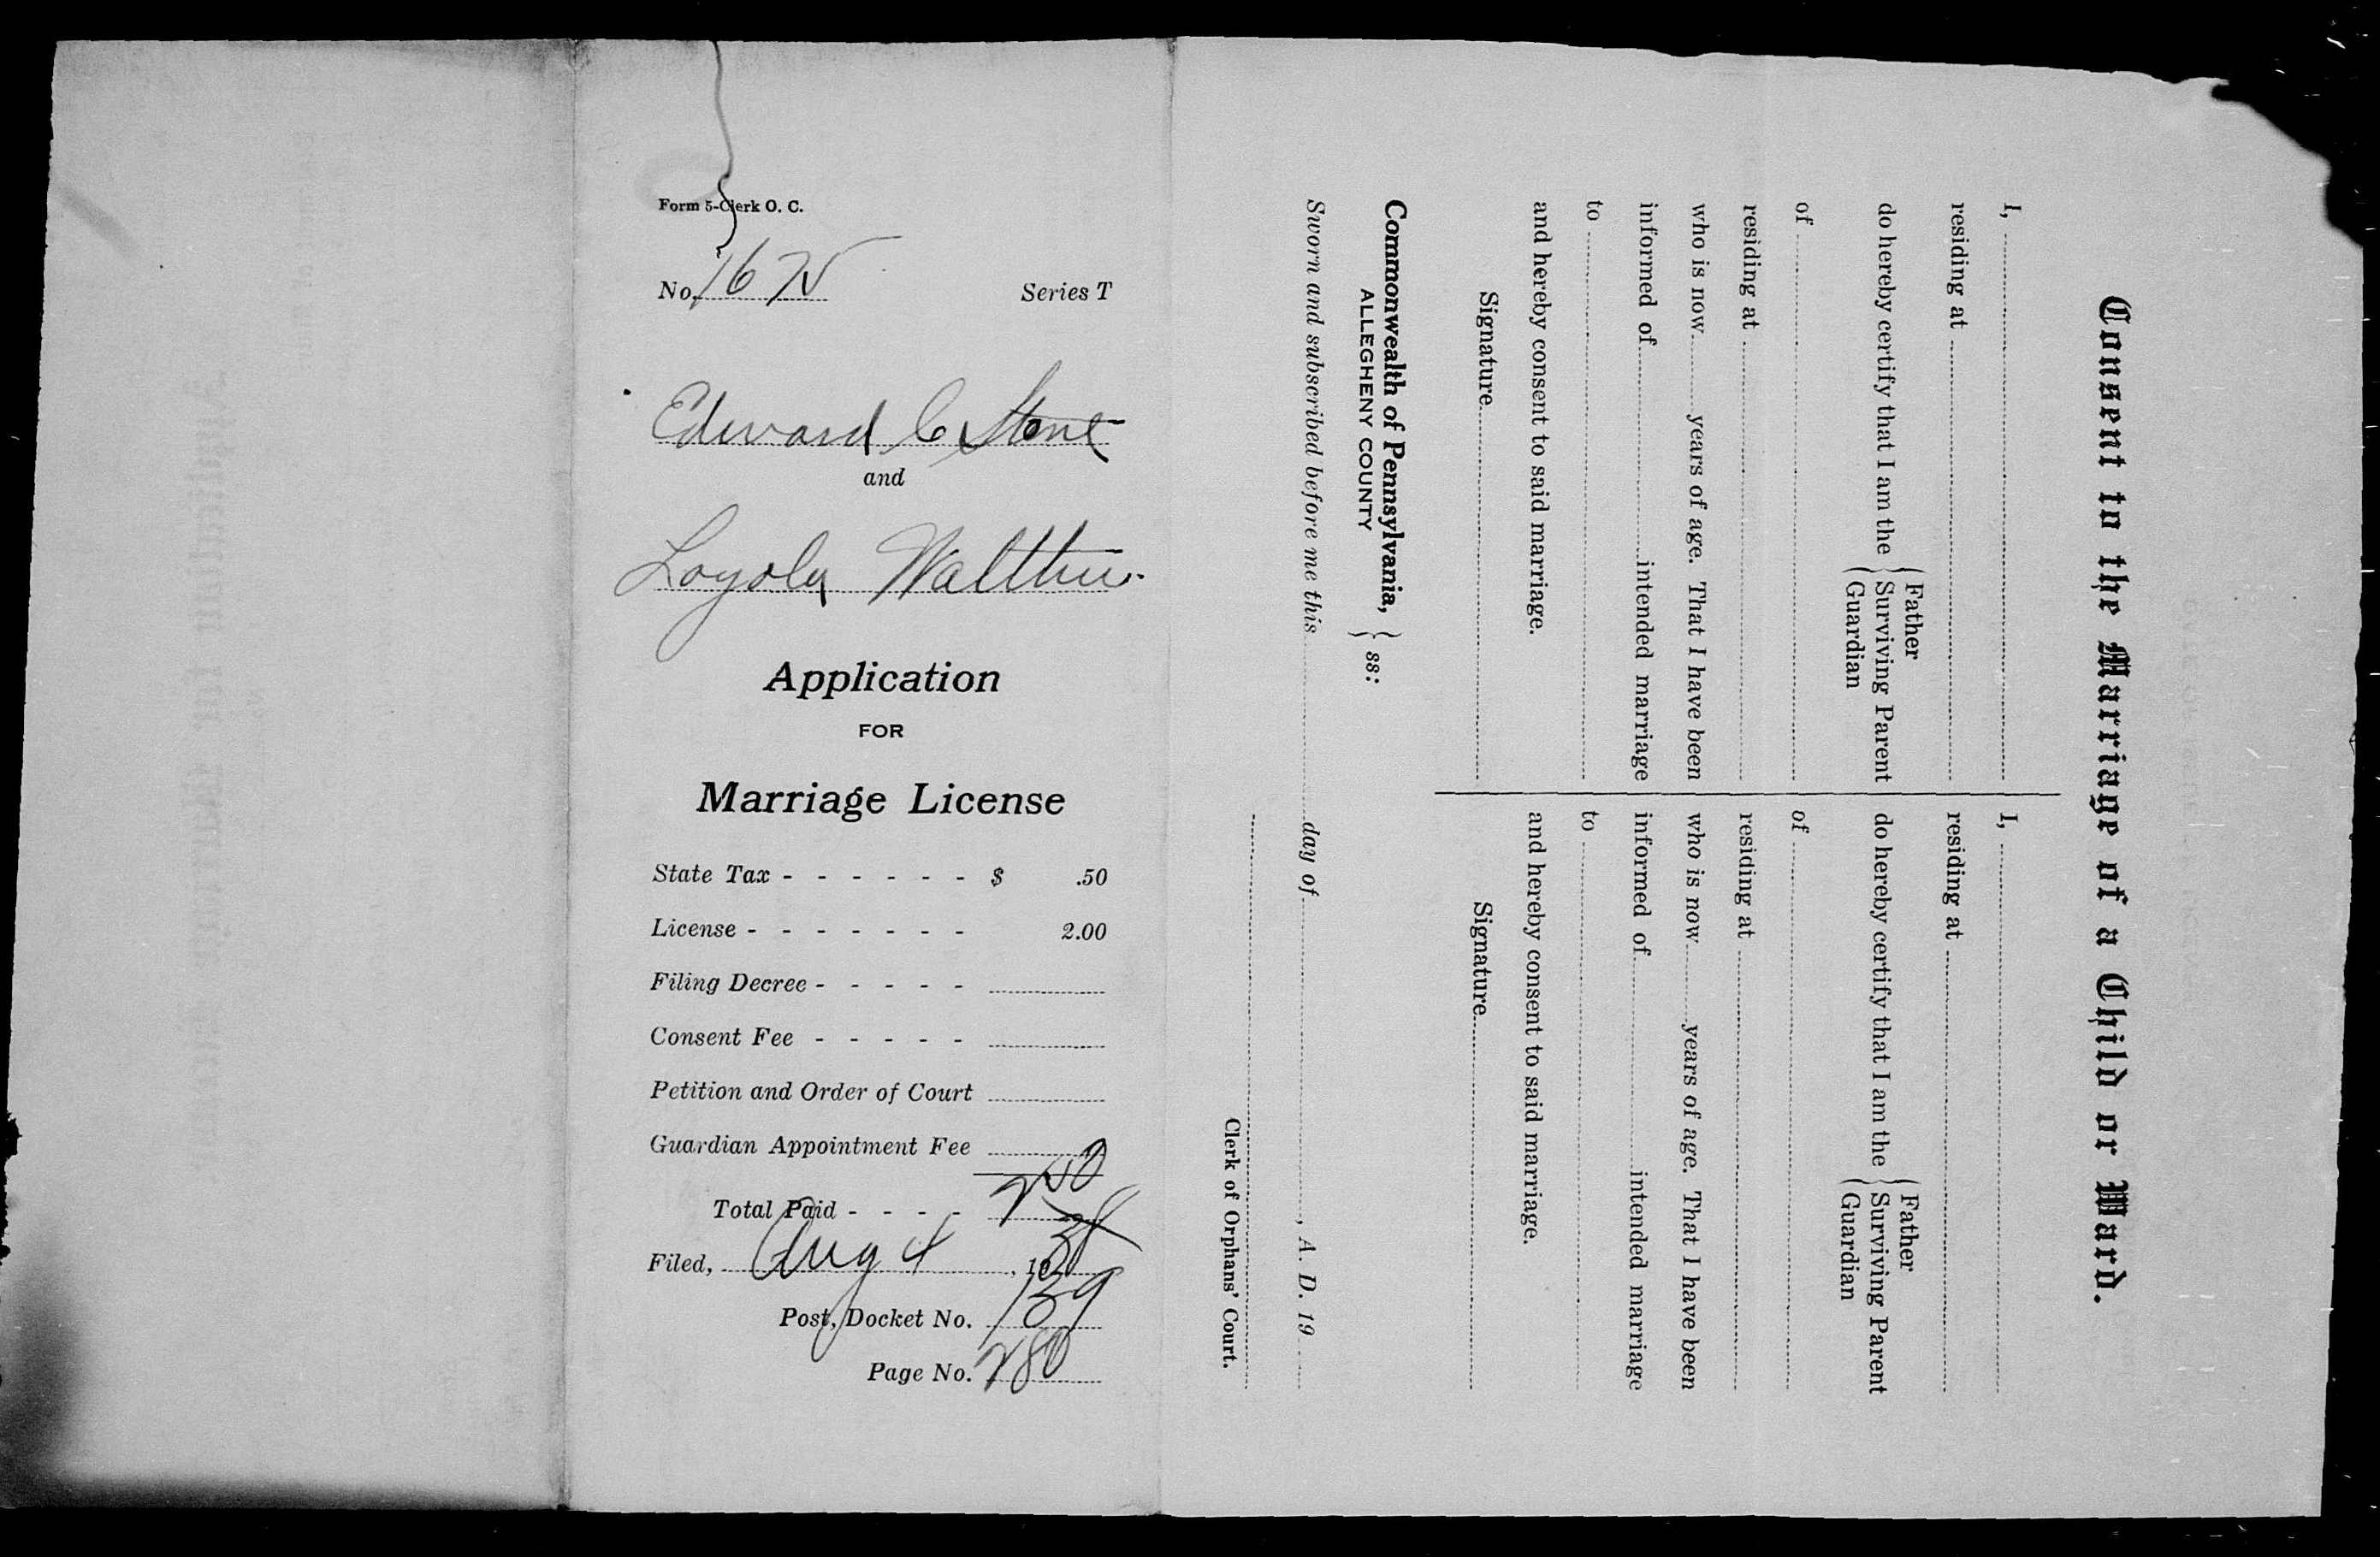 Form 5-Clerk O. C.
No. 1675 Series T
Edward C Stone
and
Loyola
Application
FOR
Marriage License
State Tax - - - - - - $ .50
License - - - - - - - 2.00
Filing Decree - - - - -
Consent Fee - - - - -
Petition and Order of Court
Guardian Appointment Fee
Total Paid - - - - 2 50
Filed, Aug 4, 19
Post, Docket No. 139
Page No. 280
Consent to the Marriage of a Child or Ward.
I,
residing at
do hereby certify that I am the { Father
Surviving Parent
Guardian
of
residing at
who is now years of age. That I have been
informed of intended marriage
to
and hereby consent to said marriage.
Signature
I,
residing at
do hereby certify that I am the { Father
Surviving Parent
Guardian
of
residing at
who is now years of age. That I have been
informed of intended marriage
to
and hereby consent to said marriage.
Signature
Commonwealth of Pennsylvania, } ss:
ALLEGHENY COUNTY
Sworn and subscribed before me this day of , A. D. 19
Clerk of Orphans' Court.